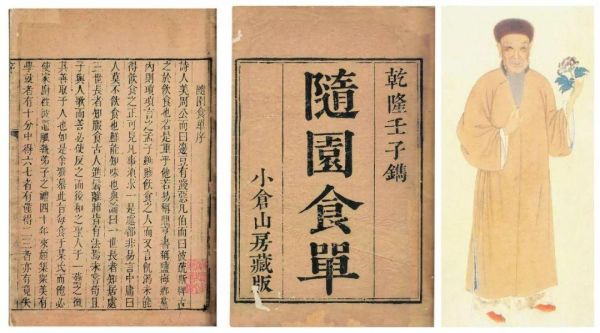 乾隆壬子鐫
隨園食單
小倉山房藏版
隨園食單序
詩人美周公而曰籩豆有踐惡凡伯而曰彼疏斯稗古
之於飲食也若是重乎他若易稱鼎烹書稱鹽梅鄉黨
內則瑣瑣言之孟子雖賤飲食之人而又言飢渴未能
得飲食之正可見凡事須求一是處都非易言中庸曰
人莫不飲食也鮮能知味也典論曰一世長者知居處
三世長者知服食古人進鬐離肺皆有法焉未嘗苟且
子與人歌而善必使反之而後和之聖人于一藝之微
其善取于人也如是余雅慕此旨每食于某氏而飽必
使家廚往彼灶觚執弟子之禮四十年來頗集衆美有
學就者有十分中得六七者有僅得二三者亦有竟失